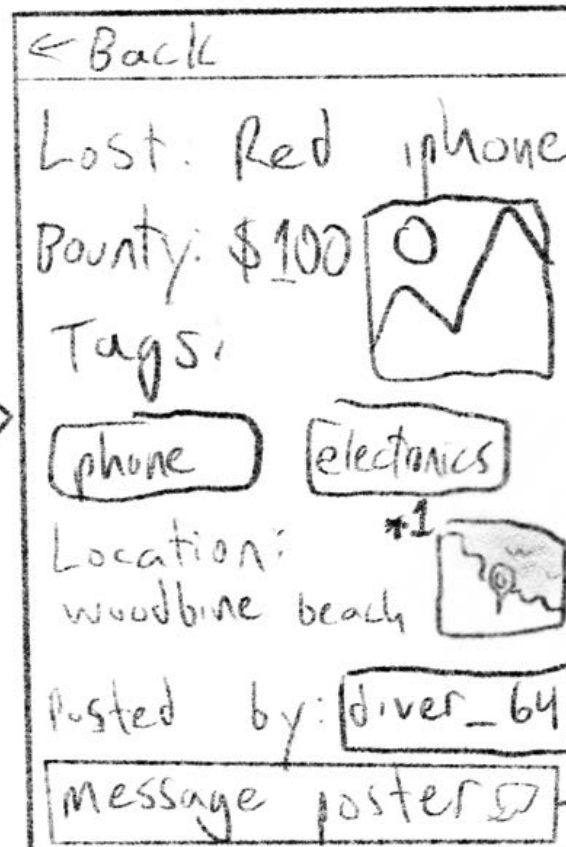 ← Back
Lost: Red iphone
Bounty: $100
Tags:
phone electronics
*1
Location:
woodbine beach
Posted by: diver_64
message poster